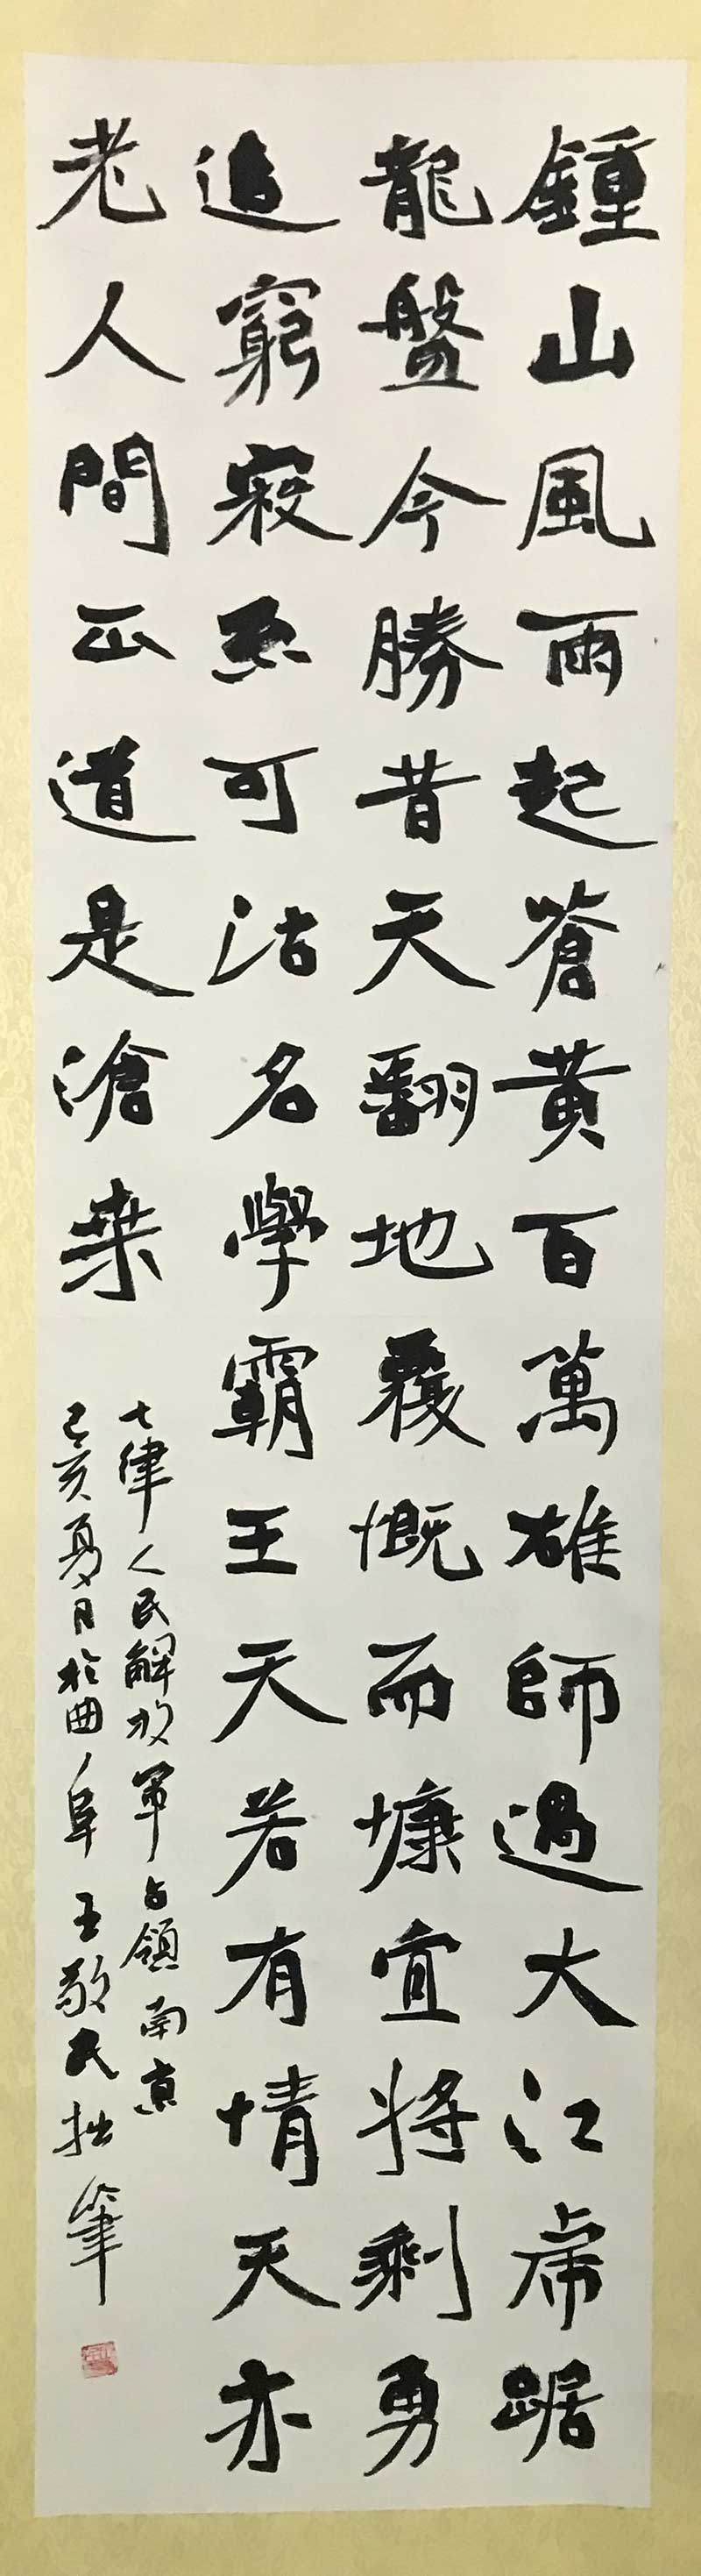 鍾山風雨起蒼黃百萬雄師過大江虎踞
龍盤今勝昔天翻地覆慨而慷宜將剩勇
追窮寇不可沽名學霸王天若有情天亦
老人間正道是滄桑
七律人民解放軍占領南京
己亥夏月於曲阜王敬民拙筆